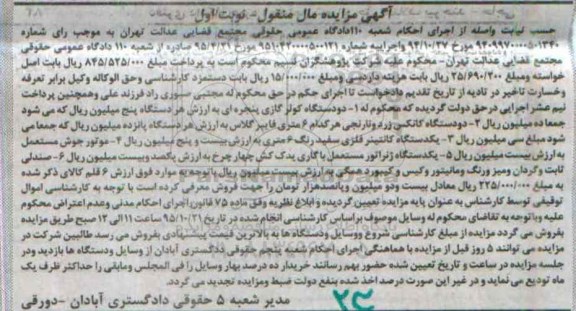 آگهی مزایده مال منقول نوبت اول
حسب نیابت واصله از اجرای احکام شعبه ۱۱۰دادگاه عمومی حقوقی مجتمع قضایی عدالت تهران به موجب رای شماره
۹۴۰۹۹۷۰۰۰۰۵۰۱۳۴۰ مورخ ۹۴/۱۰/۲۷ واجراییه شماره ۹۵۱۰۴۲۰۰۰۰۵۰۰۱۲۱ مورخ ۹۵/۲/۲۱ صادره از شعبه ۱۱۰ دادگاه عمومی حقوقی
مجتمع قضایی عدالت تهران- محکوم علیه شرکت پژوهشگران قسیم محکوم است به پرداخت مبلغ ۸۴۵/۵۲۵/۰۰۰ ریال بابت اصل
خواسته ومبلغ ۲۵/۶۹۰/۲۰۰ ریال بابت هزینه دادرسی ومبلغ ۱۵/۰۰۰/۰۰۰ ریال بابت دستمزد کارشناسی وحق الوکاله وکیل برابر تعرفه
وخسارت تاخیر در تادیه از تاریخ تقدیم دادخواست تا اجرای حکم در حق محکوم له مجتبی منصوری راد فرزند علی وهمچنین پرداخت
نیم عشر اجرایی در حق دولت گردیده که محکوم له ۱- دودستگاه کولر گازی پنجره ای به ارزش هر دستگاه پنج میلیون ریال که می شود
جمعا ده میلیون ریال ۲- دودستگاه کانکس زرد ونارنجی هر کدام ۶ متری فایبر گلاس به ارزش هر دستگاه پانزده میلیون ریال که جمعا می
شود مبلغ سی میلیون ریال ۳- یکدستگاه کانتینر فلزی سفید رنگ ۶ متری به ارزش بیست و پنج میلیون ریال ۴- موتور جوش مستعمل
به ارزش بیست میلیون ریال ۵- یکدستگاه ژنراتور مستعمل با گاری یدک کش چهار چرخ به ارزش یکصد وبیست میلیون ریال ۶- صندلی
ثابت و گردان ومیز ورنگ ومانیتور وکیس و کیبورد همگی به ارزش بیست میلیون ریال باتوجه به موارد فوق ارزش ۶ قلم کالای ذکر شده
به مبلغ ۲۲۵/۰۰۰/۰۰۰ ریال معادل بیست ودو میلیون وپانصدهزار تومان را جهت فروش معرفی کرده است با توجه به کارشناسی اموال
توقیفی توسط کارشناس به عنوان پایه مزایده تعیین گردیده و ابلاغ نظریه وفق ماده ۷۵ قانون اجرای احکام مدنی وعدم اعتراض محکوم
علیه وباتوجه به تقاضای محکوم له وسایل موصوف براساس کارشناسی انجام شده در تاریخ ۹۵/۱۰/۲۱ ساعت ۱۱ الی ۱۲ صبح طریق مزایده
بفروش می گردد مزایده از مبلغ کارشناسی شروع ووسایل ودستگاه ها به بالاترین قیمت پیشنهادی بفروش می رسد طالبین شرکت در
مزایده می توانند ۵ روز قبل از مزایده با هماهنگی اجرای احکام شعبه پنجم حقوقی دادگستری آبادان از وسایل ودستگاه ها بازدید ودر
جلسه مزایده در ساعت و تاریخ تعیین شده حضور بهم رسانند خریدار ده درصد بهای وسایل را فی المجلس ومابقی را حداکثر ظرف یک
ماه تودیع می نماید و در غیر این صورت درصد اخذ شده بنفع دولت ضبط ومزایده تجدید می گردد.
مدیر شعبه ۵ حقوقی دادگستری آبادان -دورقی